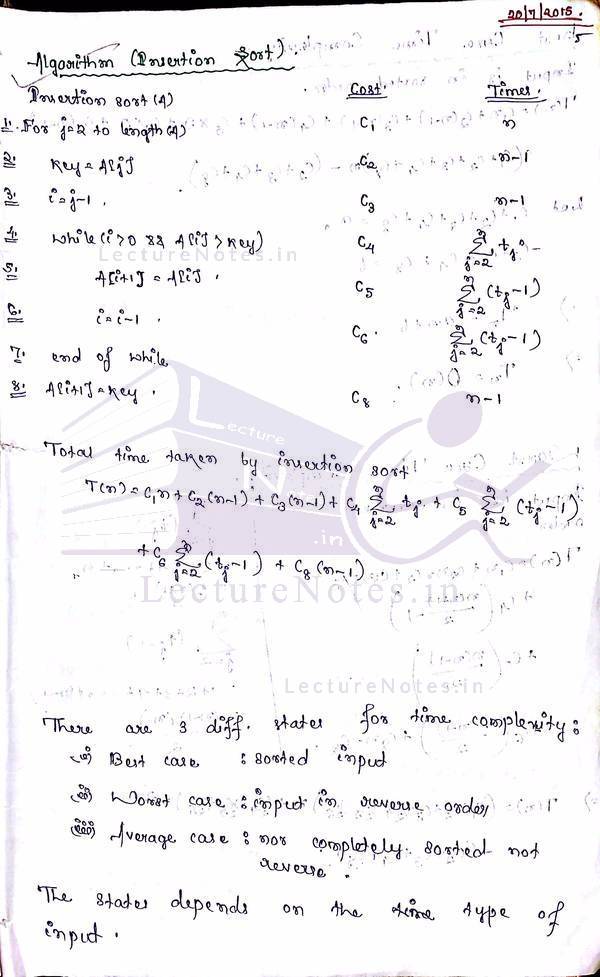 20/7/2015.
5
Algorithm (Insertion Sort).
Insertion sort (A) Cost. Times.
1. For j=2 to length(A) C1 n
2. Key = A[j] C2 n-1
3. i=j-1. C3 n-1
4. while (i>0 && A[i] > Key) C4 n∑j=2 tj -
LectureNotes.in
5. A[i+1] = A[i]. C5 n∑j=2 (tj-1)
6. i=i-1. C6. n∑j=2 (tj-1)
7. end of while
8. A[i+1]=Key. C8 n-1
Lecture
N
Total time taken by insertion sort
T(n) = C1n + C2(n-1) + C3(n-1) + C4 n∑j=2 tj + C5 n∑j=2 (tj-1)
.in
+ C6 n∑j=2 (tj-1) + C8(n-1).
LectureNotes.in
LectureNotes.in
There are 3 diff. states for time complexity:
(i) Best case : sorted input
(ii) Worst case : input in reverse order
(iii) Average case : nor completely sorted not
reverse.
The states depends on the time type of
input.